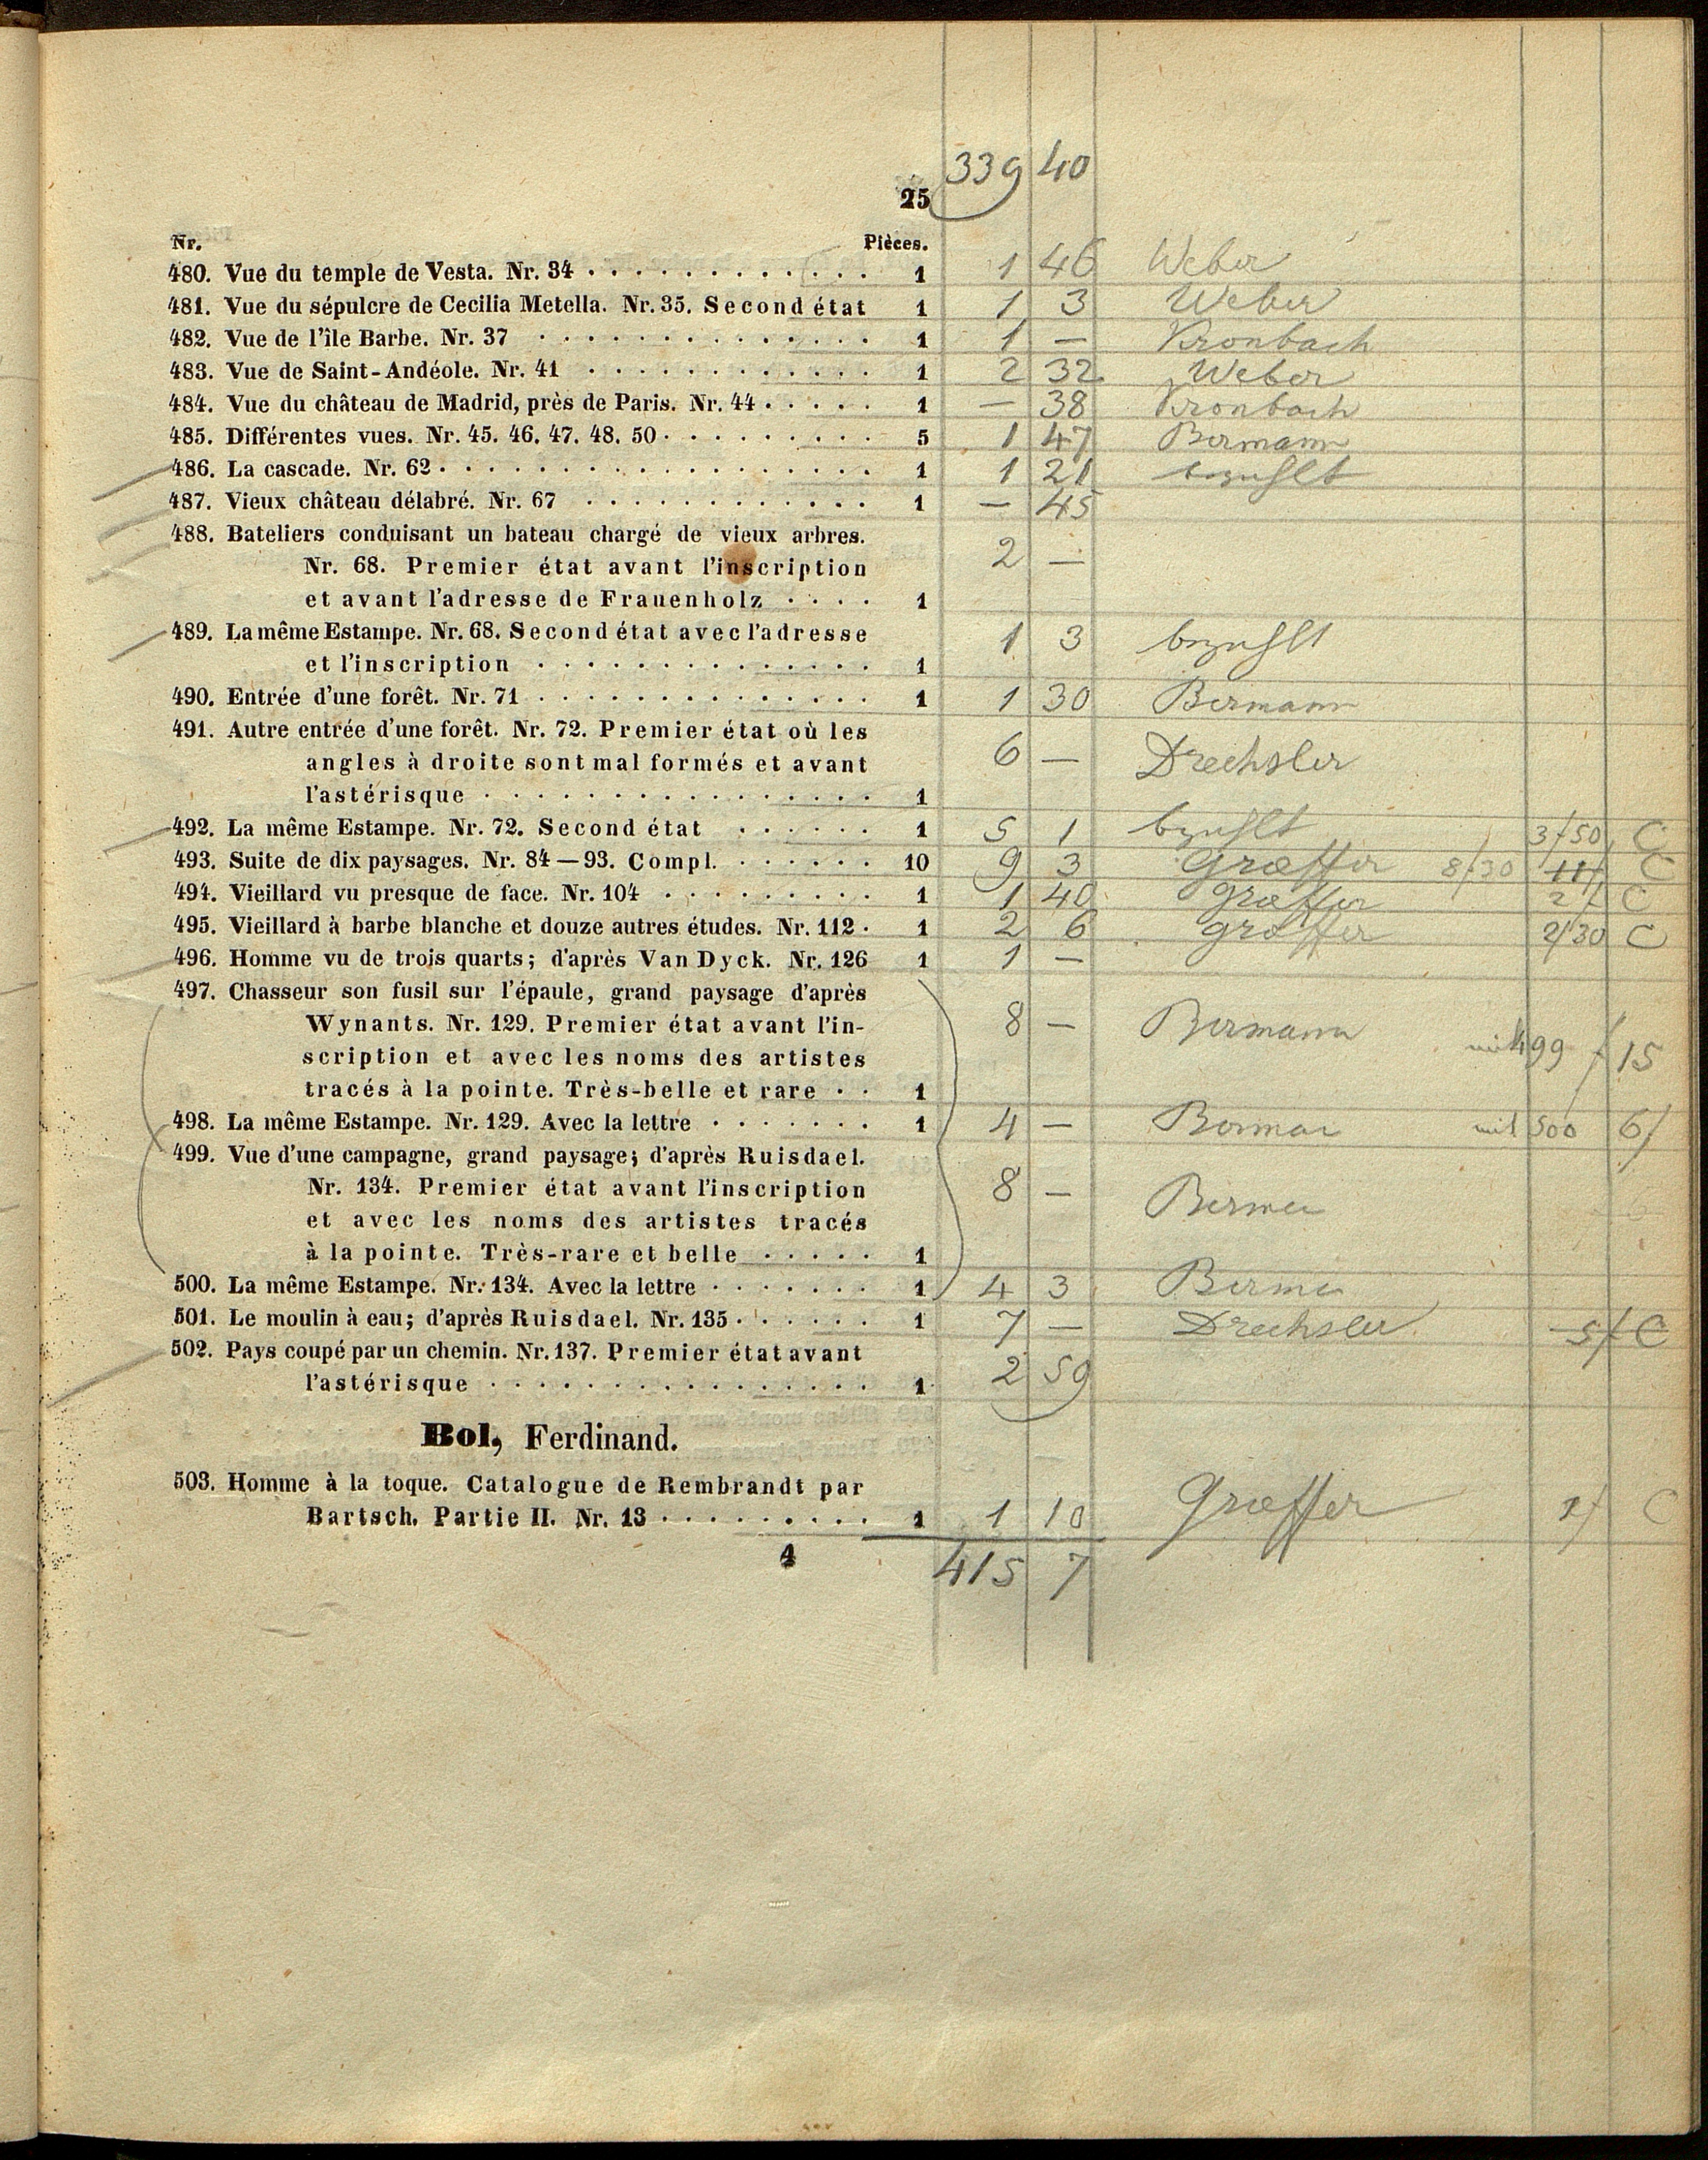 339 40
25
Nr. Pièces.
480. Vue du temple de Vesta. Nr. 34 . . . . . . . . . . . . 1 1 46 Weber
481. Vue du sépulcre de Cecilia Metella. Nr. 35. Second état 1 1 3 Weber
482. Vue de l'île Barbe. Nr. 37 . . . . . . . . . . . . . . 1 1 — Kronbach
483. Vue de Saint-Andéole. Nr. 41 . . . . . . . . . . . . 1 2 32 Weber
484. Vue du château de Madrid, près de Paris. Nr. 44 . . . . . 1 — 38 Kronbach
485. Différentes vues. Nr. 45. 46. 47. 48. 50 . . . . . . . . . 5 1 47 Bermann
486. La cascade. Nr. 62 . . . . . . . . . . . . . . . . . 1 1 21 bezahlt
487. Vieux château délabré. Nr. 67 . . . . . . . . . . . . 1 — 45
488. Bateliers conduisant un bateau chargé de vieux arbres.
Nr. 68. Premier état avant l'inscription 2 —
et avant l'adresse de Frauenholz . . . . 1
489. La même Estampe. Nr. 68. Second état avec l'adresse 1 3 bezahlt
et l'inscription . . . . . . . . . . . . . . 1
490. Entrée d'une forêt. Nr. 71 . . . . . . . . . . . . . . 1 1 30 Bermann
491. Autre entrée d'une forêt. Nr. 72. Premier état où les
angles à droite sont mal formés et avant 6 — Drechsler
l'astérisque . . . . . . . . . . . . . . . . 1
492. La même Estampe. Nr. 72. Second état . . . . . . 1 5 1 bezahlt 3/50 C
493. Suite de dix paysages. Nr. 84—93. Compl. . . . . . . 10 9 3 Græffer 8/30 11/ C
494. Vieillard vu presque de face. Nr. 104 . . . . . . . . . 1 1 40 Græffer 2/ C
495. Vieillard à barbe blanche et douze autres études. Nr. 112 . 1 2 6 Græffer 2/30 C
496. Homme vu de trois quarts; d'après Van Dyck. Nr. 126 1 1 —
497. Chasseur son fusil sur l'épaule, grand paysage d'après
Wynants. Nr. 129. Premier état avant l'in- 8 — Bermann
scription et avec les noms des artistes mit 499 / 15
tracés à la pointe. Très-belle et rare . . 1
498. La même Estampe. Nr. 129. Avec la lettre . . . . . . . 1 4 — Berman mit 500 6/
499. Vue d'une campagne, grand paysage; d'après Ruisdael.
Nr. 134. Premier état avant l'inscription 8 —
et avec les noms des artistes tracés
à la pointe. Très-rare et belle . . . . . 1
500. La même Estampe. Nr. 134. Avec la lettre . . . . . . . 1 4 3
501. Le moulin à eau; d'après Ruisdael. Nr. 135 . . . . . . 1 7 — Drechsler 5/ C
502. Pays coupé par un chemin. Nr. 137. Premier état avant 2 59
l'astérisque . . . . . . . . . . . . . . . . 1
Bol, Ferdinand.
503. Homme à la toque. Catalogue de Rembrandt par
Bartsch. Partie II. Nr. 13 . . . . . . . . . 1 1 10 Græffer C
4
415 7